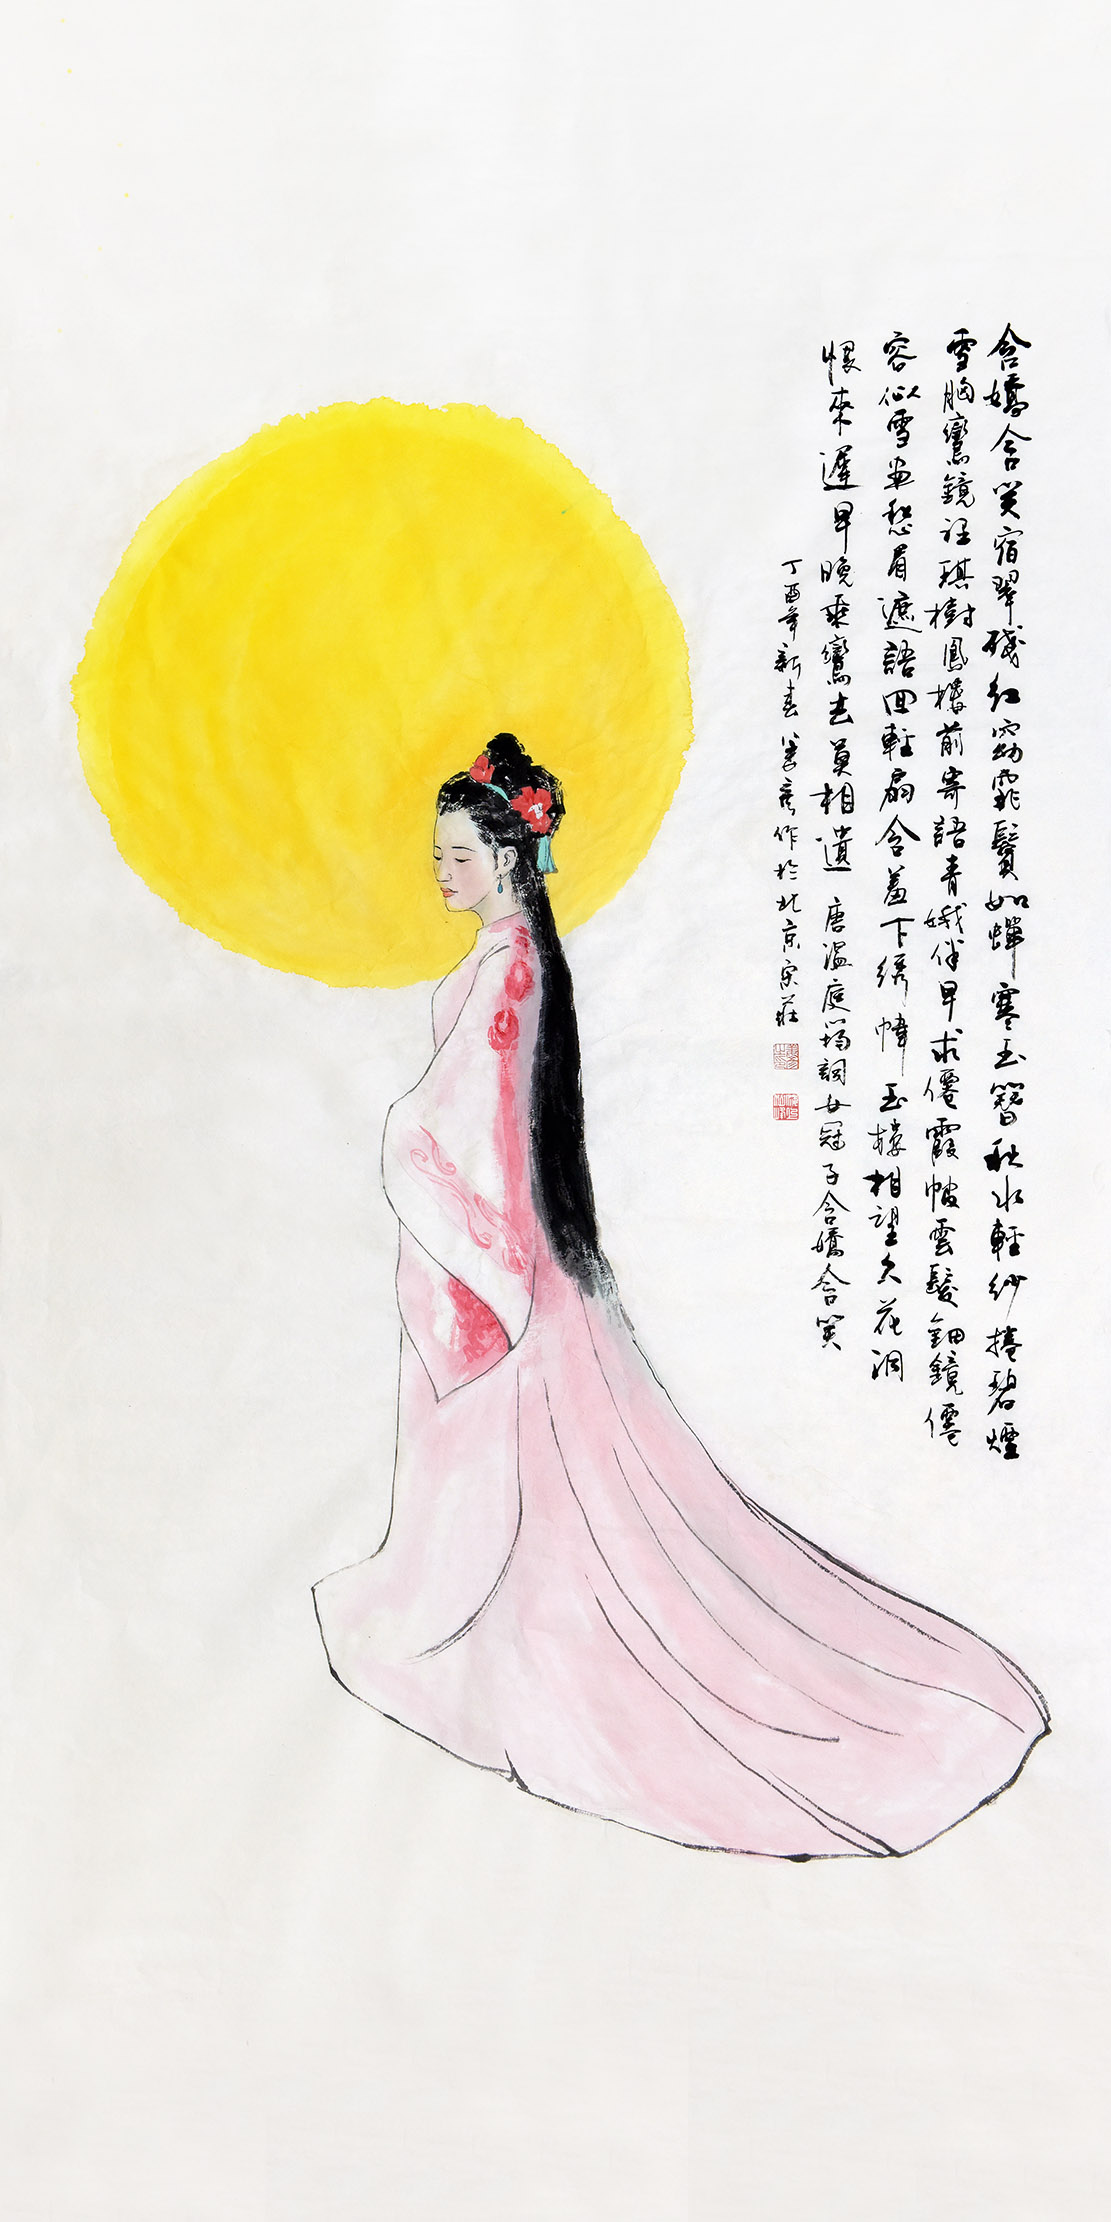 含嬌含笑宿翠殘紅窈窕鬢如蟬寒玉簪秋水輕紗捲碧煙
雪胸鸞鏡裡琪樹鳳樓前寄語青娥伴早求僊霞帔雲髮鈿鏡僊
容似雪畫愁眉遮語回輕扇含羞下繡幃玉樓相望久花洞
恨來遲早晚乘鸞去莫相遺 唐溫庭筠詞女冠子含嬌含笑
丁酉年新春 作於北京宋莊